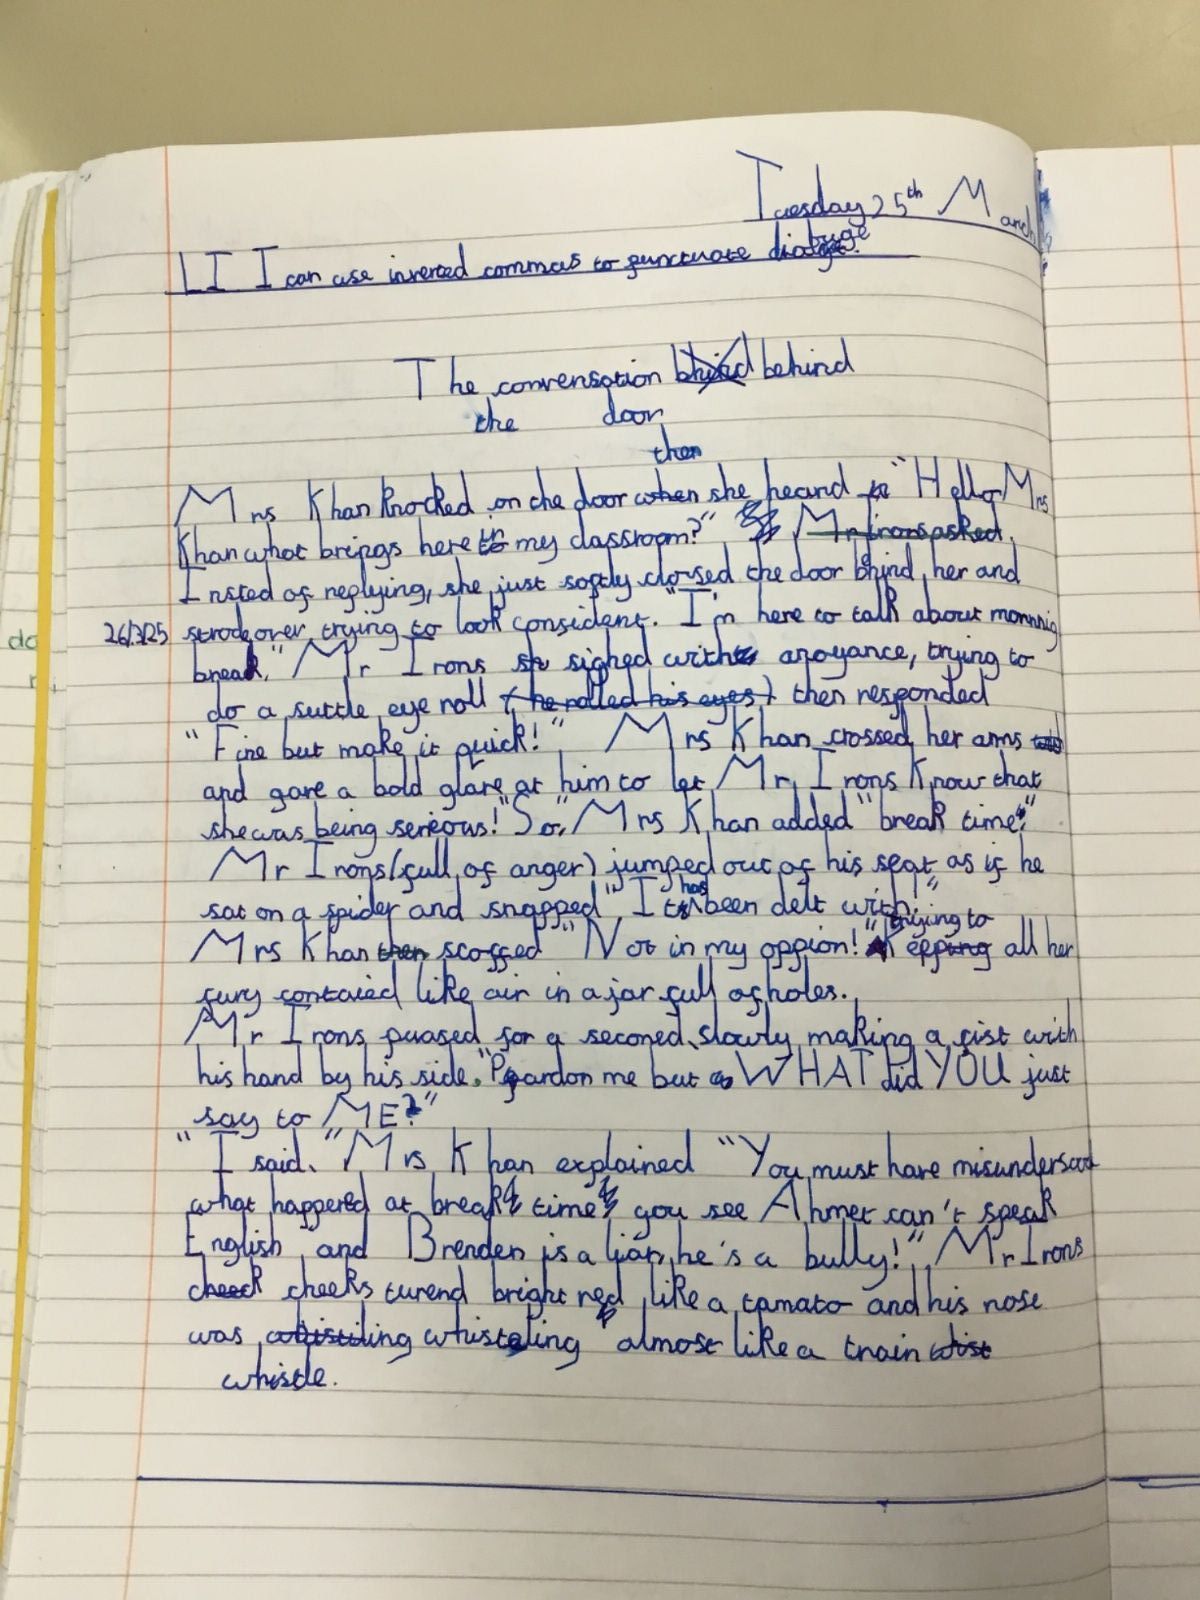 Tuesday 25th March
LI I can use inverted commas to punctuate
The convensation behind
the door
then
Mrs Khan knocked on the door when she heard "Hello Mrs
Khan what brings here in my classroom?" Mr Irons asked.
Insted of replying, she just softly closed the door bhind her and
26/3/25 strode over trying to look consident. "I'm here to talk about monnnig
break." Mr Irons sighed with anoyance, trying to
do a suttle eye roll (he rolled his eyes) then responded
"Fine but make it quick!" Mrs Khan crossed her arms
and gave a bold glare at him to let Mr Irons know that
she was being sereous! "So," Mrs Khan added "break time."
Mr Irons (full of anger) jumped out of his seat as if he
sat on a spider and snapped "It has been delt with."
trying to
Mrs Khan then scoffed "Not in my oppion!" Kepping all her
fury contaied like air in a jar full of holes.
Mr Irons puased for a seconed, slowly making a fist with
his hand by his side. "Pardon me but WHAT did YOU just
say to ME?"
"I said," Mrs Khan explained "You must have misundersood
what happered at break time, you see Ahmet can't speak
English and Brenden is a liar, he's a bully!" Mr Irons
cheeck cheeks turend bright red like a tamato and his nose
was whisteling almost like a train
whistle.
do